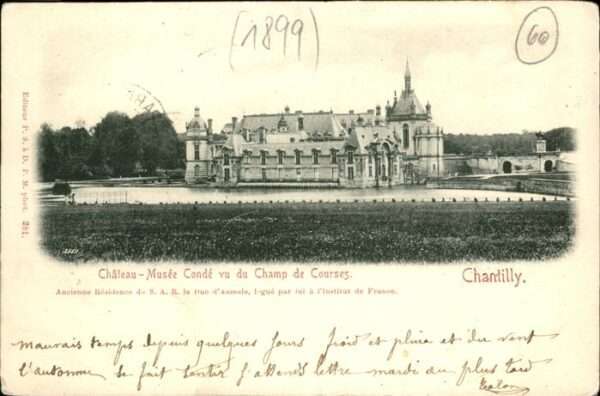 (1899)
60
CHA
Editeur P. S. à D. P. M. phot. 251.
Château-Musée Condé vu du Champ de Courses.
Chantilly.
Ancienne Résidence de S. A. R. le duc d'Aumale, légué par lui à l'Institut de France.
mauvais temps depuis quelques jours froid et pluie et du vent
l'automne se fait sentir j'attends lettre mardi au plus tard